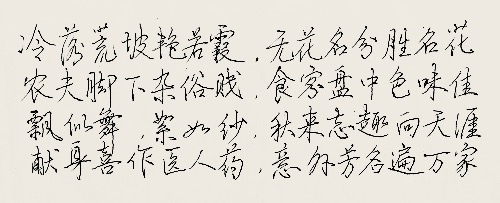 冷落荒坡艳若霞，无花名分胜名花
农夫脚下杂俗贱，食客盘中色味佳
飘似舞，絮如纱，秋来志趣向天涯
献身喜作医人药，意外芳名遍万家